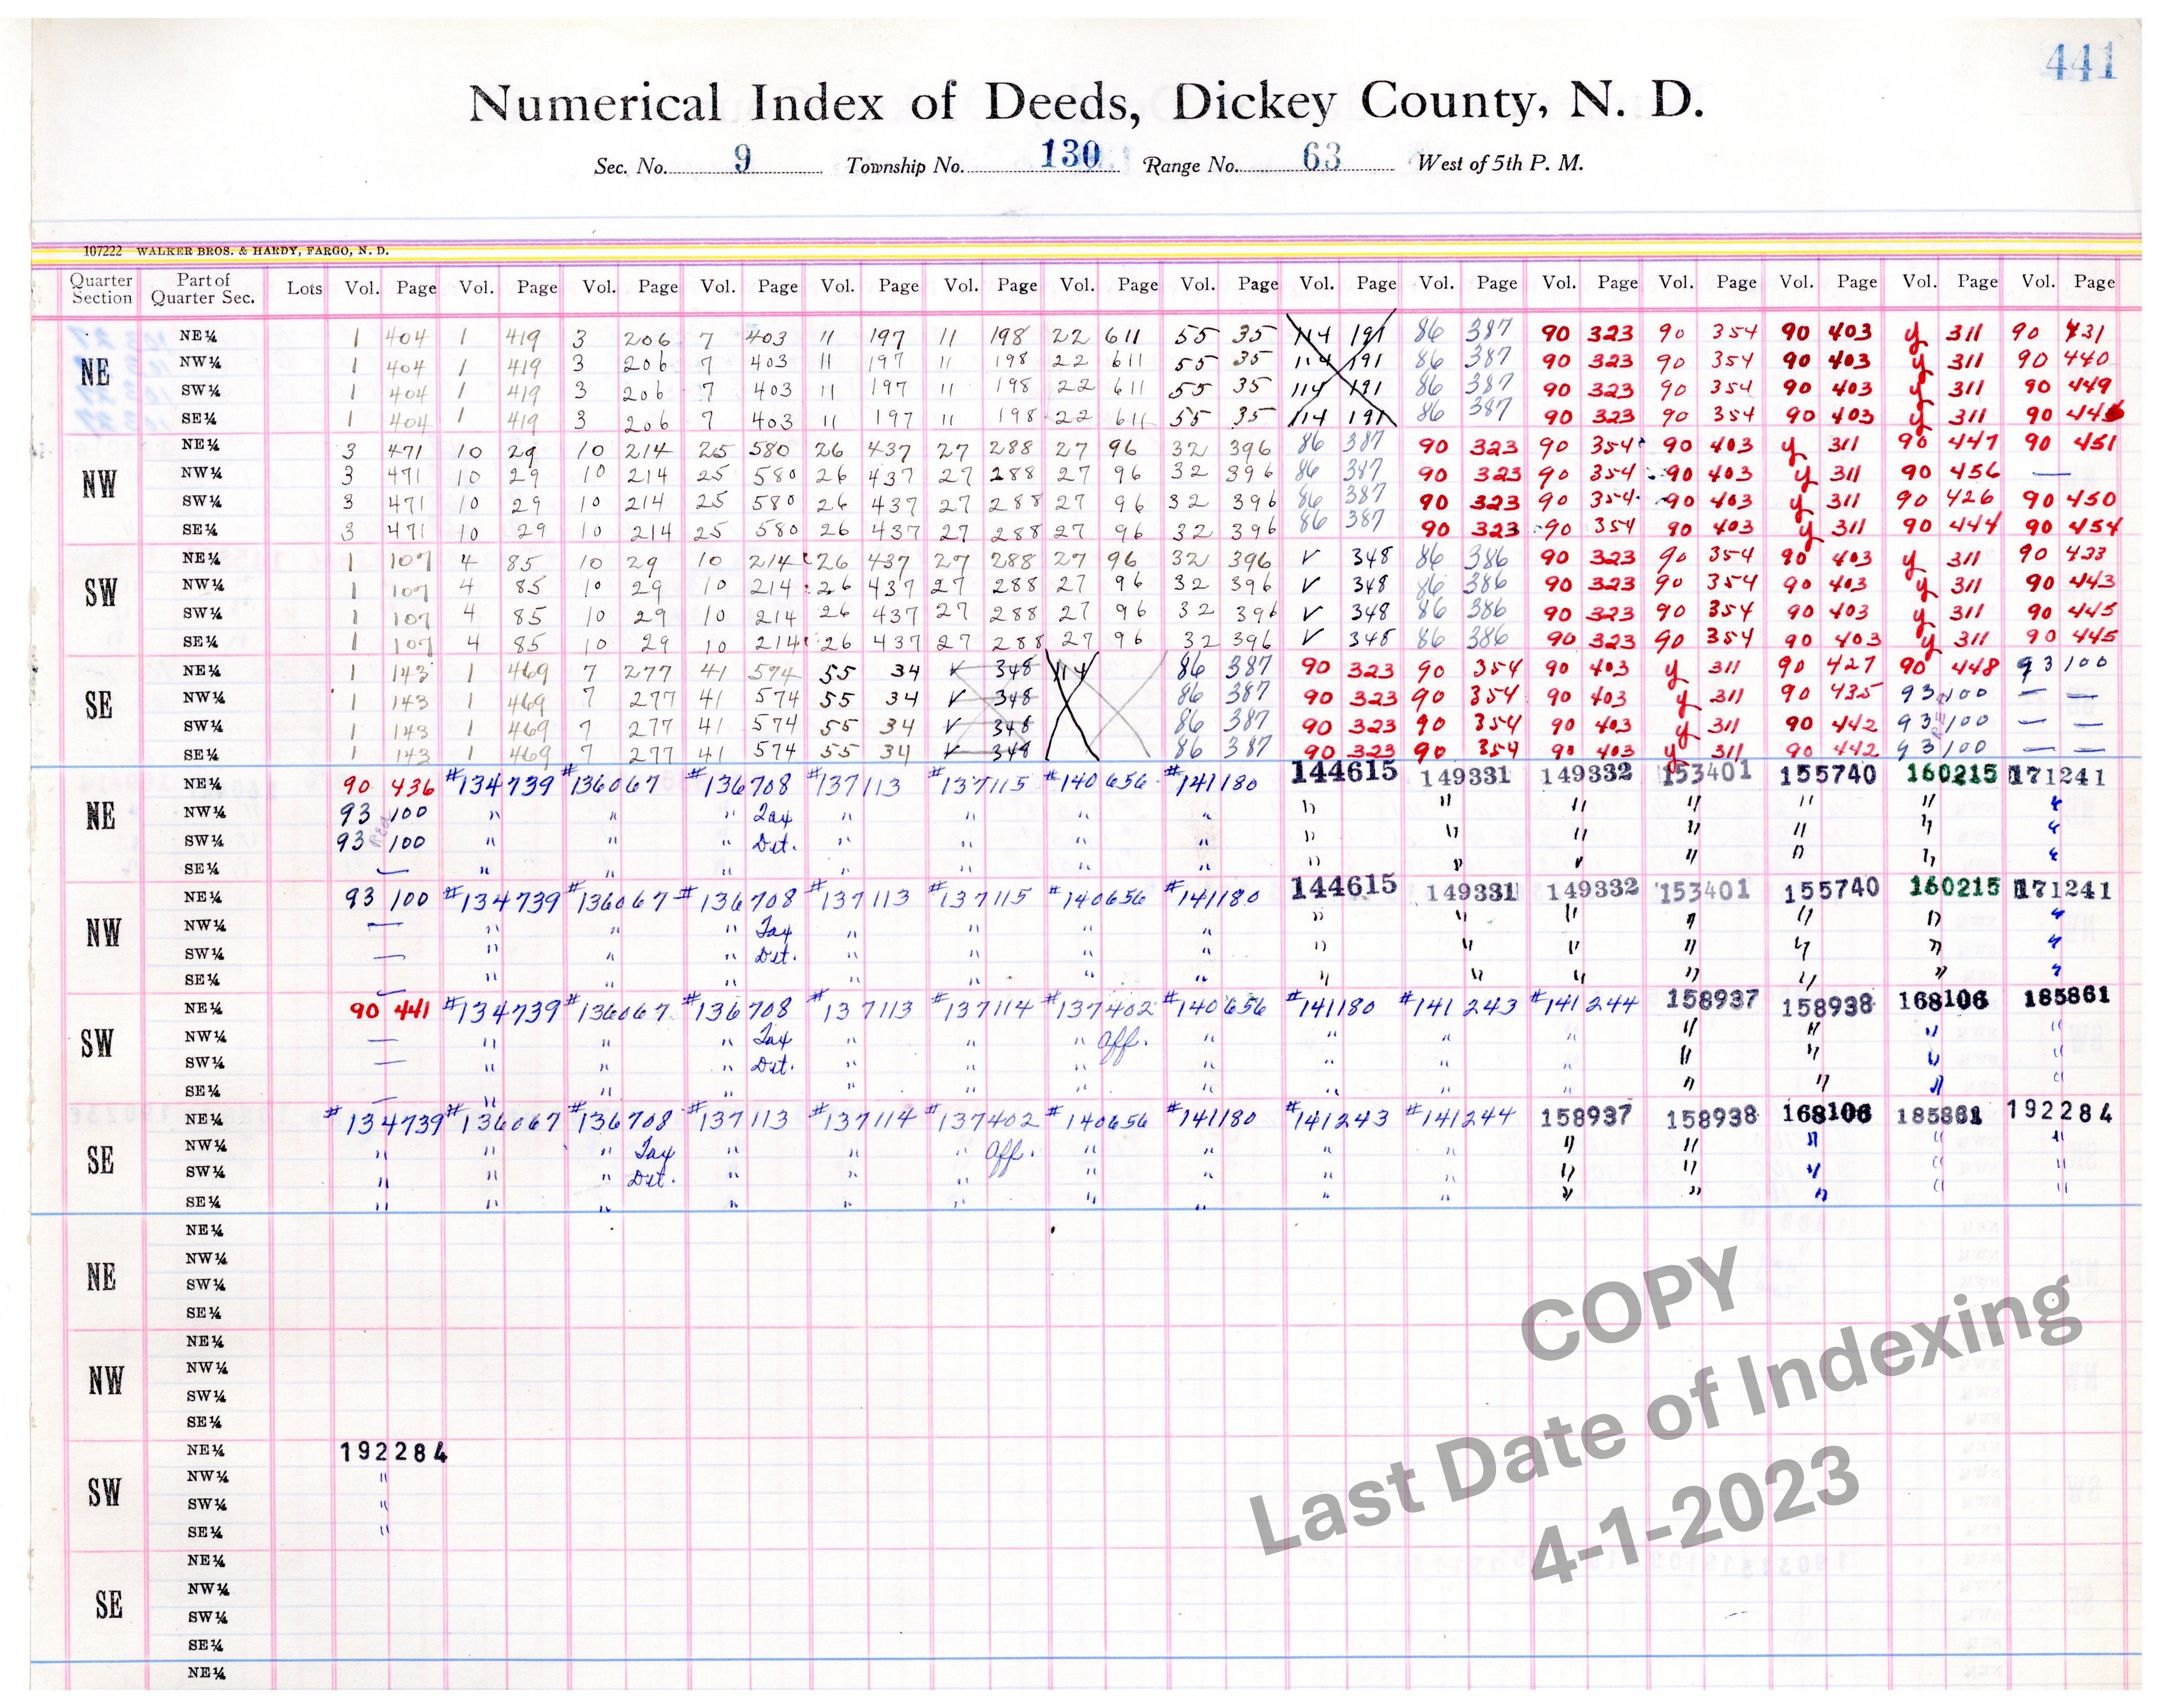 441
Numerical Index of Deeds, Dickey County, N. D.
Sec. No. 9 Township No. 130 Range No. 63 West of 5th P. M.
107222 WALKER BROS. & HARDY, FARGO, N. D.
Quarter Section Part of Quarter Sec. Lots Vol. Page Vol. Page Vol. Page Vol. Page Vol. Page Vol. Page Vol. Page Vol. Page Vol. Page Vol. Page Vol. Page Vol. Page Vol. Page Vol. Page Vol. Page
NE
NE¼ 1 404 1 419 3 206 7 403 11 197 11 198 22 611 55 35 114 191 86 387 90 323 90 354 90 403 y 311 90 431
NW¼ 1 404 1 419 3 206 7 403 11 197 11 198 22 611 55 35 114 191 86 387 90 323 90 354 90 403 y 311 90 440
SW¼ 1 404 1 419 3 206 7 403 11 197 11 198 22 611 55 35 114 191 86 387 90 323 90 354 90 403 y 311 90 449
SE¼ 1 404 1 419 3 206 7 403 11 197 11 198 22 611 55 35 114 191 86 387 90 323 90 354 90 403 y 311 90
NW
NE¼ 3 471 10 29 10 214 25 580 26 437 27 288 27 96 32 396 86 387 90 323 90 354 90 403 y 311 90 447 90 451
NW¼ 3 471 10 29 10 214 25 580 26 437 27 288 27 96 32 396 86 387 90 323 90 354 90 403 y 311 90 456 —
SW¼ 3 471 10 29 10 214 25 580 26 437 27 288 27 96 32 396 86 387 90 323 90 354 90 403 y 311 90 426 90 450
SE¼ 3 471 10 29 10 214 25 580 26 437 27 288 27 96 32 396 86 387 90 323 90 354 90 403 y 311 90 444 90 454
SW
NE¼ 1 107 4 85 10 29 10 214 26 437 27 288 27 96 32 396 V 348 86 386 90 323 90 354 90 403 y 311 90 433
NW¼ 1 107 4 85 10 29 10 214 26 437 27 288 27 96 32 396 V 348 86 386 90 323 90 354 90 403 y 311 90 443
SW¼ 1 107 4 85 10 29 10 214 26 437 27 288 27 96 32 396 V 348 86 386 90 323 90 354 90 403 y 311 90 445
SE¼ 1 107 4 85 10 29 10 214 26 437 27 288 27 96 32 396 V 348 86 386 90 323 90 354 90 403 y 311 90 445
SE
NE¼ 1 143 1 469 7 277 41 574 55 34 V 348 114 86 387 90 323 90 354 90 403 y 311 90 427 90 448 93 100
NW¼ 1 143 1 469 7 277 41 574 55 34 V 348 86 387 90 323 90 354 90 403 y 311 90 435 93 100 — —
SW¼ 1 143 1 469 7 277 41 574 55 34 V 348 86 387 90 323 90 354 90 403 y 311 90 442 93 100 — —
SE¼ 1 143 1 469 7 277 41 574 55 34 V 348 86 387 90 323 90 354 90 403 y 311 90 442 93 100 — —
NE
NE¼ 90 436 #134739 #136067 #136708 #137113 #137115 #140656 #141180 144615 149331 149332 153401 155740 160215 171241
NW¼ 93 100 " " " Tax " " " " " " " " " " "
SW¼ 93 100 " " " Dst. " " " " " " " " " " "
SE¼ — " " " " " " " " " " " " " "
NW
NE¼ 93 100 #134739 #136067 #136708 #137113 #137115 #140656 #141180 144615 149331 149332 153401 155740 160215 171241
NW¼ — " " " Tax " " " " " " " " " " "
SW¼ — " " " Dst. " " " " " " " " " " "
SE¼ — " " " " " " " " " " " " " "
SW
NE¼ 90 441 #134739 #136067 #136708 #137113 #137114 #137402 #140656 #141180 #141243 #141244 158937 158938 168106 185861
NW¼ — " " " Tax " " " Aff. " " " " " " " "
SW¼ — " " " Dst. " " " " " " " " " " "
SE¼ — " " " " " " " " " " " " " "
SE
NE¼ #134739 #136067 #136708 #137113 #137114 #137402 #140656 #141180 #141243 #141244 158937 158938 168106 185861 192284
NW¼ " " " Tax " " " Aff. " " " " " " " " "
SW¼ " " " Dst. " " " " " " " " " " " "
SE¼ " " " " " " " " " " " " " " "
NE
NE¼
NW¼
SW¼
SE¼
NW
NE¼
NW¼
SW¼
SE¼
SW
NE¼ 192284
NW¼ "
SW¼ "
SE¼ "
SE
NE¼
NW¼
SW¼
SE¼
NE¼
COPY
Last Date of Indexing
4-1-2023